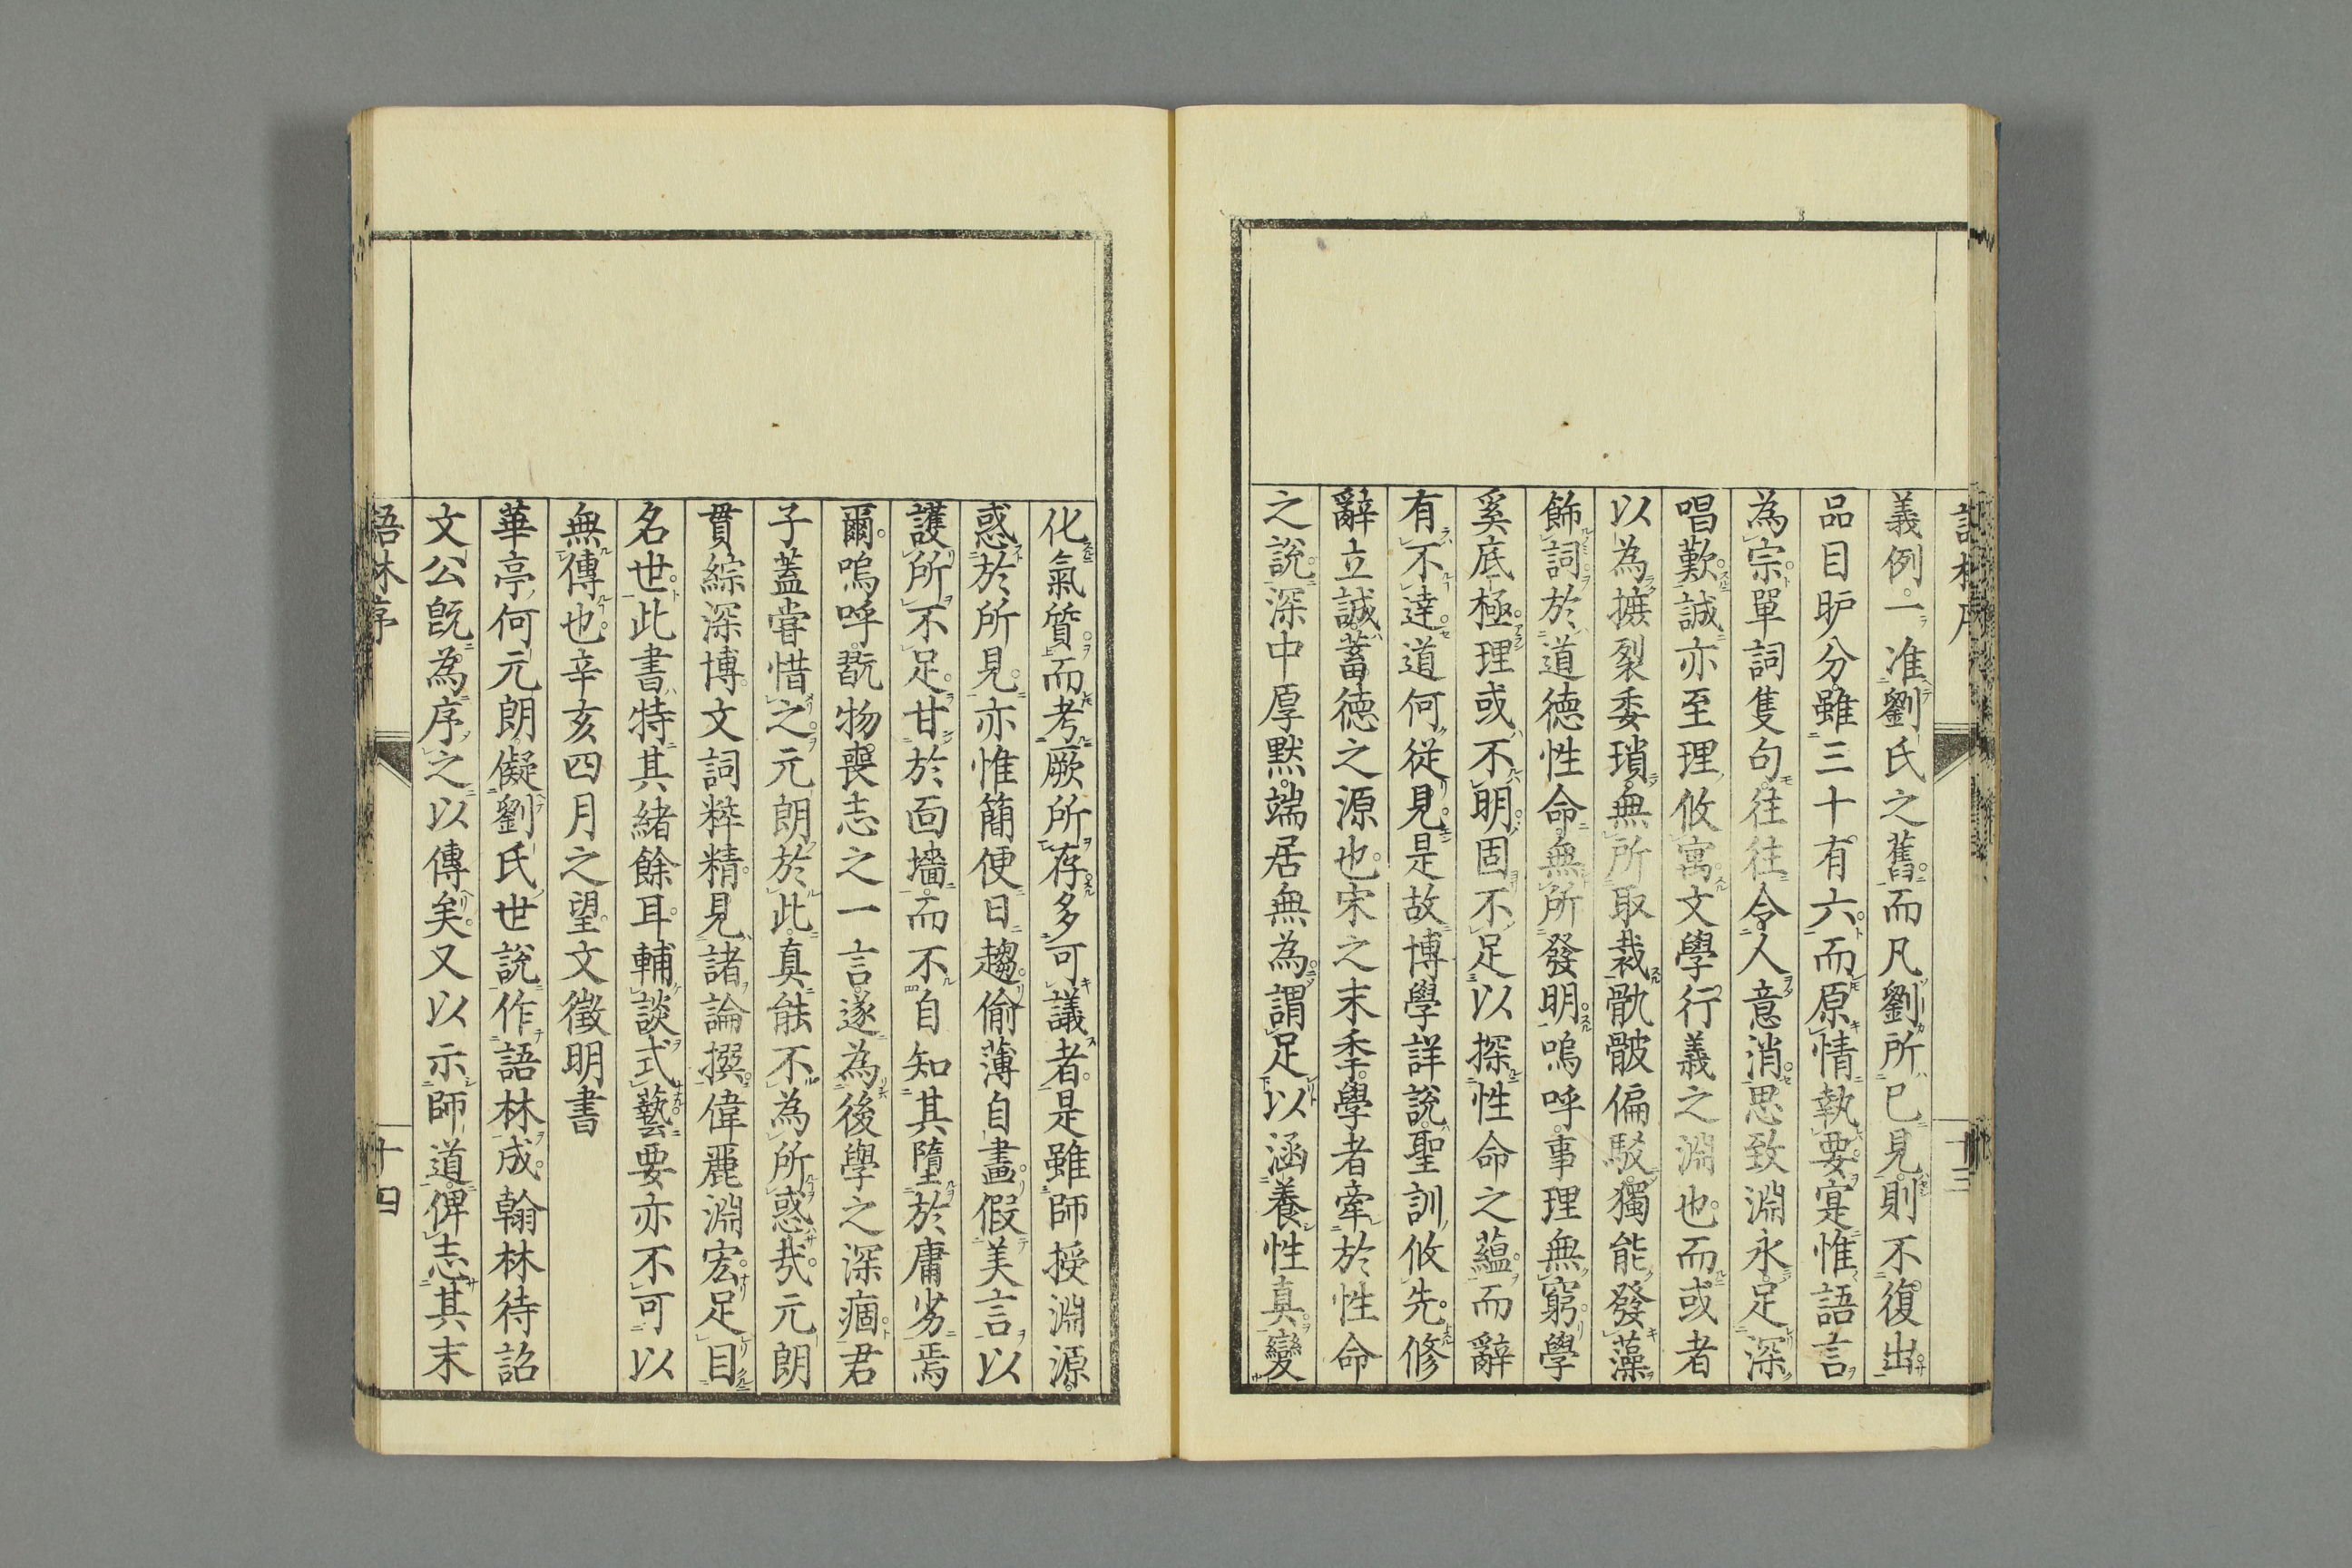 義例一准劉氏之舊而凡劉所已見則不復出
品目昈分雖三十有六而原情執要寔惟語言
為宗單詞隻句往往令人意消思致淵永足深
唱歎誠亦至理攸寓文學行義之淵也而或者
以為摭裂委瑣無所取裁骫骳偏駁獨能發藻
飾詞於道德性命無所發明嗚呼事理無窮學
奚底極理或不明固不足以探性命之蘊而辭
有不達道何從見是故博學詳說聖訓攸先修
辭立誠蓄德之源也宋之末季學者牽於性命
之說深中厚默端居無為謂足以涵養性真變
化氣質而考厥所存多可議者是雖師授淵源
惑於所見亦惟簡便日趨偷薄自畫假美言以
護所不足甘於面墻而不自知其墮於庸劣焉
爾嗚呼翫物喪志之一言遂為後學之深痼君
子蓋嘗惜之元朗於此真能不為所惑哉元朗
貫綜深博文詞粹精見諸論撰偉麗淵宏足目
名世此書特其緒餘耳輔談式藝要亦不可以
無傳也辛亥四月之望文徵明書
華亭何元朗儗劉氏世說作語林成翰林待詔
文公旣為序之以傳矣又以示師道俾志其末
語林序
十四